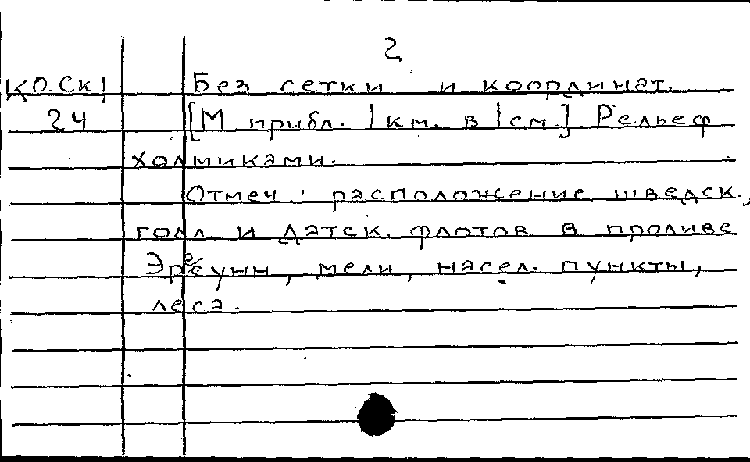 2
К О. Ск 1 Без сетки и координат.
24 [М прибл. 1 км. в 1 см.] Рельеф
холмиками.
Отмеч.: расположение шведск.,
голл. и датск. флотов в проливе
Эресунн, мели, насел. пункты,
леса.